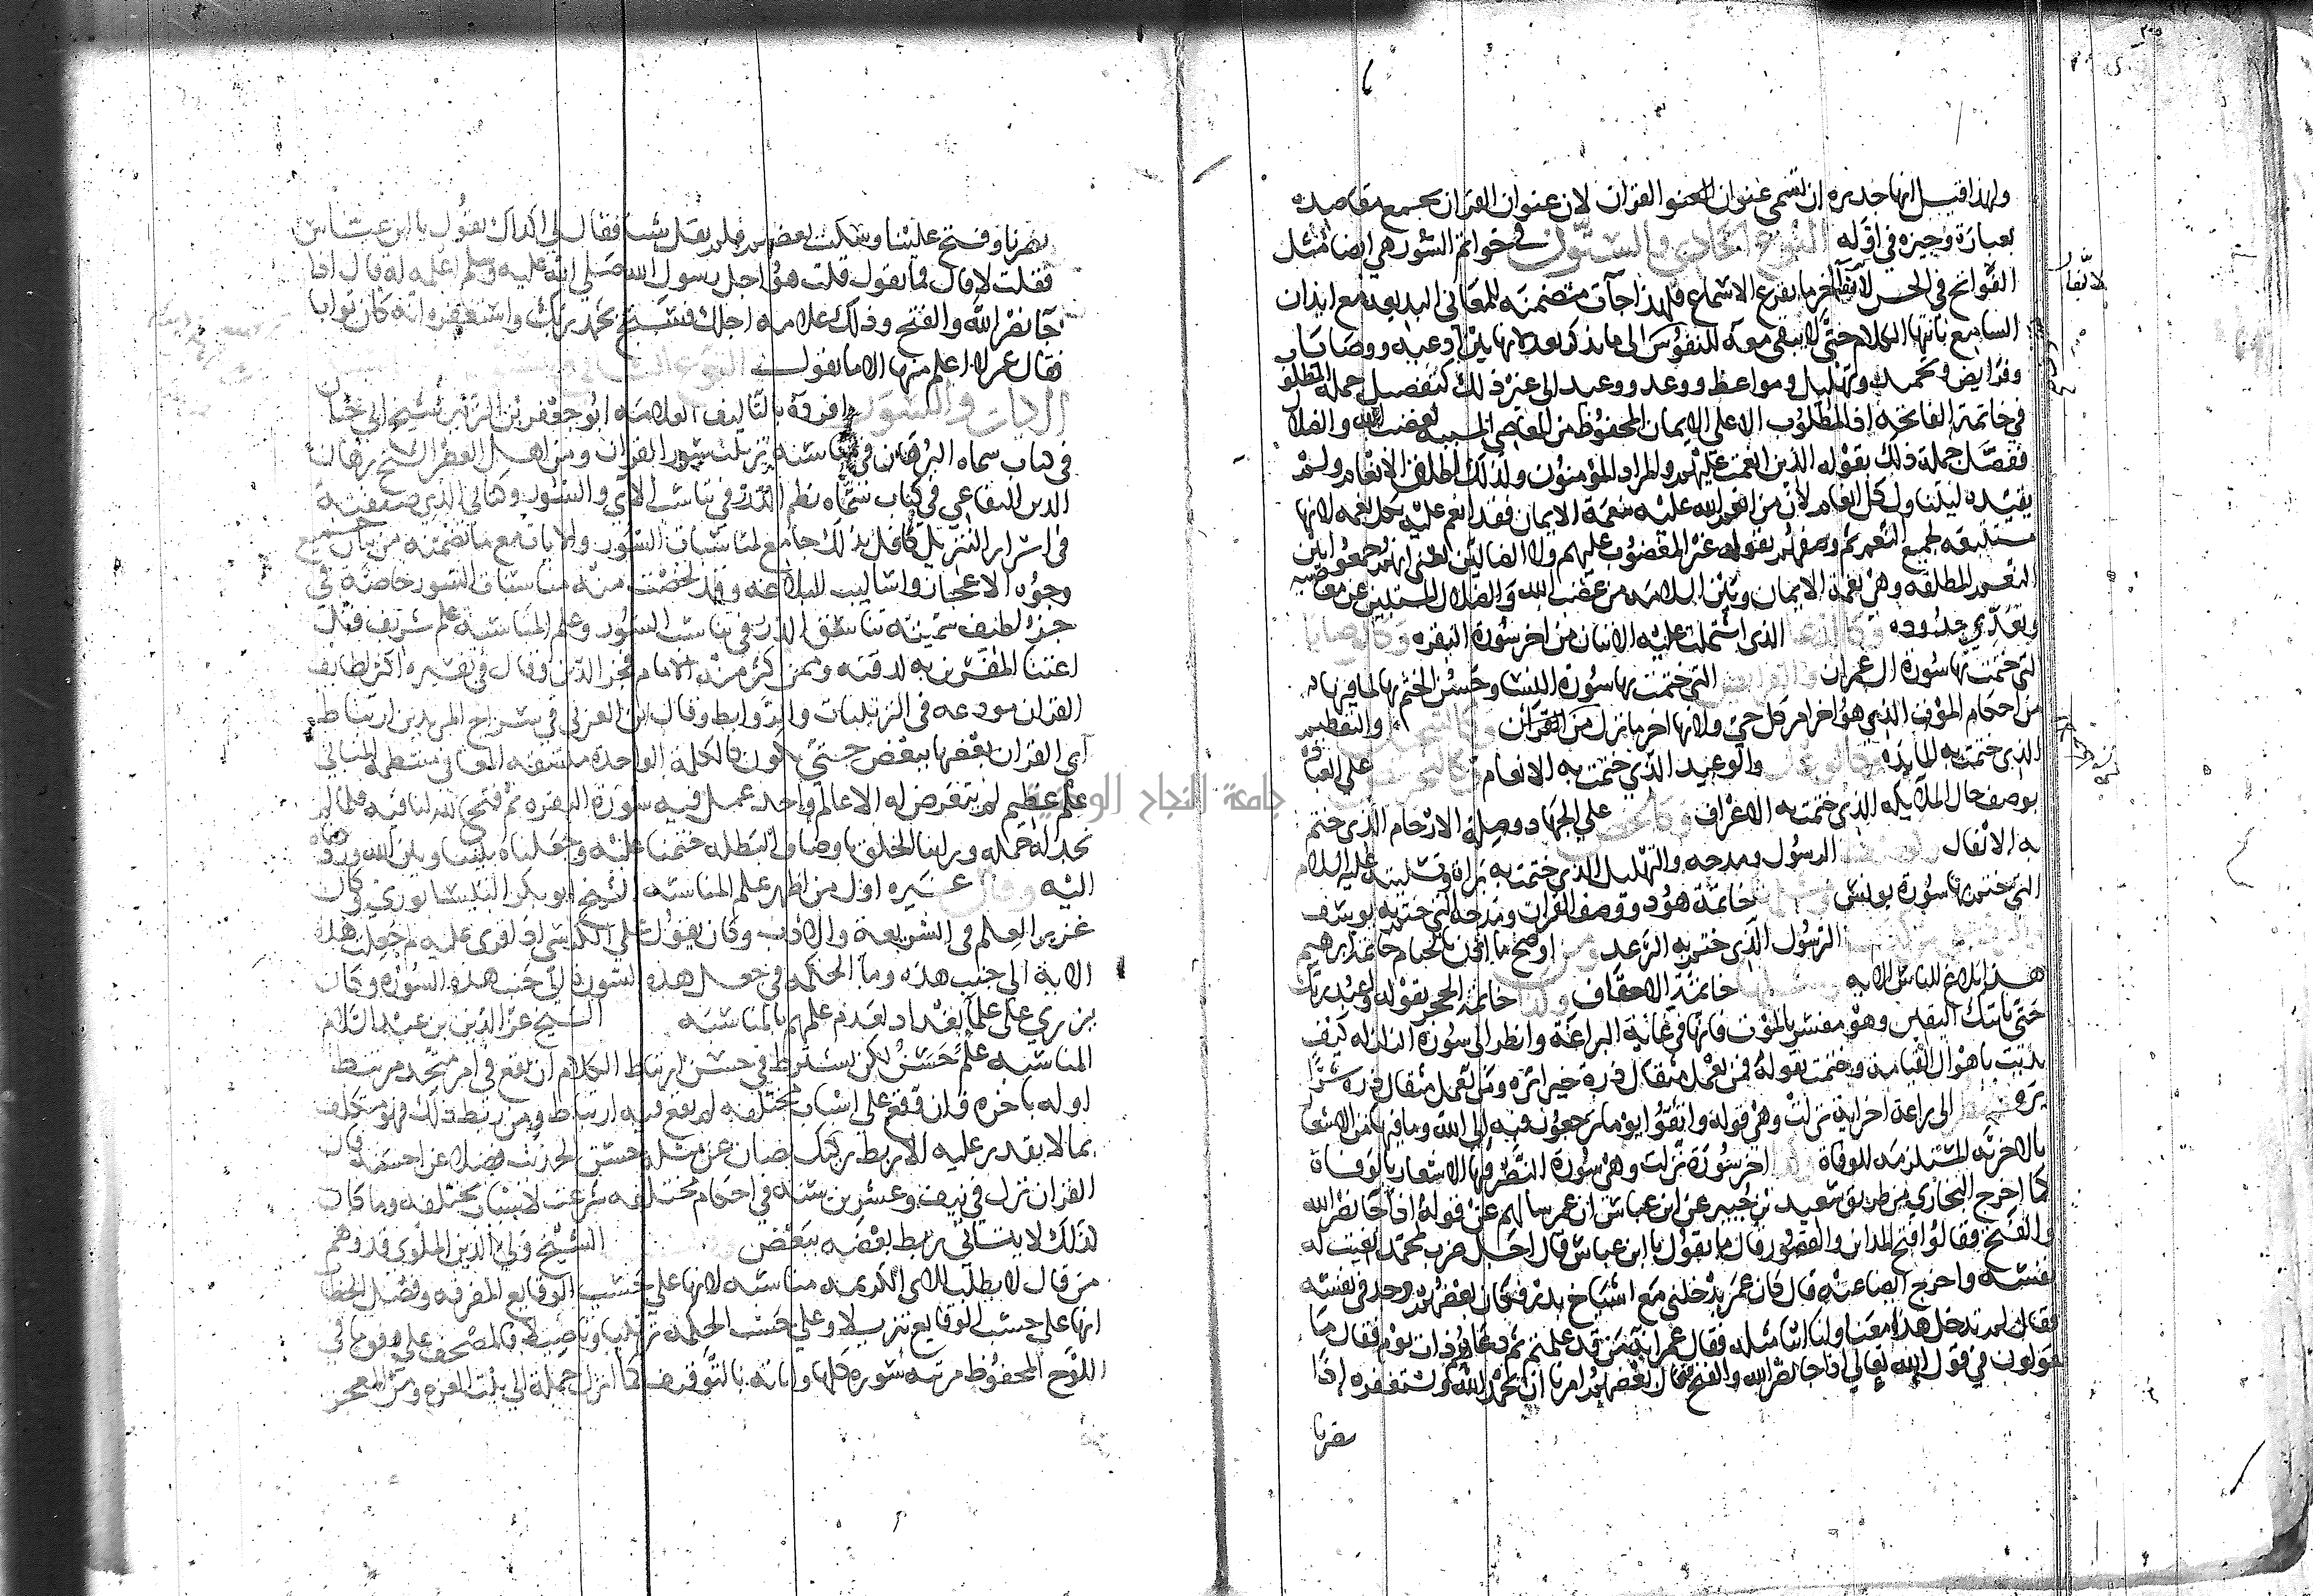 ولهذا قيل انها جديرة ان تسمى عنوان القران لان عنوان القران يجمع مقاصده
بعبارة وجيزة في اوله النوع الحادي والستون في خواتم السور هي ايضا مثل
الفواتح في الحسن لانها آخر ما يقرع الاسماع فلهذا جآت متضمنة للمعاني البديعة مع ايذان
السامع بانتها الكلام حتى لا يبقى معه للنفوس الى ما يذكر بعد لانها بين ادعيه ووصايا
وفرايض وتحميد وتهليل ومواعظ ووعد ووعيد الى غير ذلك كتفصيل جملة المطلوب
في خاتمة الفاتحه اذ المطلوب الاعلى الايمان المحفوظ من المعاصي المسببه لغضب الله والضلال
ففصل جملة ذلك بقوله الذين انعمت عليهم والمراد المؤمنون ولذلك اطلق الانعام ولم
يقيده ليتناول كل انعام لان من انعم الله عليه بنعمة الايمان فقد انعم عليه بكل نعمه لانها
مستتبعه لجميع النعم ثم وصفهم بقوله غير المغضوب عليهم ولا الضالين يعني انهم جمعوا بين
النعم المطلقه وهي نعمة الايمان وبين السلامه من غضب الله والضلال المسببين عن معاصيه
وتعدي حدوده وكالدعا الذي اشتملت عليه الايتان من اخر سورة البقره وكالوصايا
التي ختمت بها سورة ال عمران والفرايض التي ختمت بها سورة النسا وحسن الختم بها لما فيها
من احكام الموت الذي هو اخر امر كل حي ولانها اخر ما نزل من القرآن وكالتبجيل والتعظيم
الذي ختمت به المايده وكالوعد والوعيد الذي ختمت به الانعام وكالتحريض على العبادة
بوصف حال الملايكه الذي ختمت به الاعراف وكالحض على الجهاد وصلة الارحام الذي ختم
به الانفال الرسول ومدحه والتهليل الذي ختمت به براة وتسليته عليه السلام
التي ختم بها سورة يونس خاتمة هود ووصف القران ومدحه الذي ختم به يوسف
الرسول الذي ختم به الرعد ومن اوضح ما اذن بالختام خاتمة ابرهيم
هذا بلاغ للناس الايه خاتمة الاحقاف وكذا خاتمة الحجر بقوله واعبد ربك
حتى ياتيك اليقين وهو مفسر بالموت فانها في غاية البراعة وانظر الى سورة الزلزله كيف
بديت باهوال القيامة وختمت بقوله فمن يعمل مثقال ذرة خيرا يره ومن يعمل مثقال ذرة شرا
يره الى براعة اخر اية نزلت وهي قوله واتقوا يوما ترجعون فيه الى الله وما فيها من الاشعار
بالاخريه المستلزمه للوفاة اخر سورة نزلت وهي سورة النصر فيها الاشعار بالوفاة
كما اخرج البخاري من طريق سعيد بن جبير عن ابن عباس ان عمر سالهم عن قوله اذا جا نصر الله
والفتح فقالوا فتح المداين والقصور قال ما تقول يا ابن عباس قال اجل ضرب لمحمد نعيت له
نفسه واخرج ايضا عنه قال كان عمر يدخلني مع اشياخ بدر فكان بعضهم وجد في نفسه
فقال لم تدخل هذا معنا ولنا ابنا مثله فقال عمر انه من قد علمتم ثم دعاهم ذات يوم فقال ما
تقولون في قول الله تعالى اذا جا نصر الله والفتح فقال بعضهم امرنا ان نحمد الله ونستغفره اذا
نصرنا
نصرنا وفتح علينا وسكت بعضهم فلم يقل شيا فقال لي اكذاك تقول يا ابن عباس
فقلت لا قال فما تقول قلت هو اجل رسول الله صلى الله عليه وسلم اعلمه له قال اذا
جآ نصر الله والفتح وذلك علامه اجلك فسبح بحمد ربك واستغفره انه كان توابا
فقال عمر لا اعلم منها الا ما تقول النوع الثاني والستون في
الايات والسور افرده بالتاليف العلامة ابو جعفر بن الزبير شيخ ابي حيان
في كتاب سماه البرهان في مناسبة ترتيب سور القران ومن اهل العصر الشيخ برهان
الدين البقاعي في كتاب سماه نظم الدرر في تناسب الاي والسور وكتابي الذي صنفته
في اسرار التنزيل كافل بذلك جامع لمناسبات السور والايات مع ما تضمنه من بيان جميع
وجوه الاعجاز واساليب البلاغه وقد لخصت منه مناسبات السور خاصة في
جزء لطيف سميته تناسق الدرر في تناسب السور وعلم المناسبة علم شريف قل
اعتنا المفسرين به لدقته وممن اكثر منه الامام فخر الدين وقال في تفسيره اكثر لطايف
القران مودعه في الترتيبات والروابط وقال ابن العربي في سراج المريدين ارتباط
آي القران بعضها ببعض حتى تكون كالكلمة الواحدة متسقه المعاني منتظمة المباني
علم عظيم لم يتعرض له الا عالم واحد عمل فيه سورة البقره ثم فتح الله لنا فيه فلما لم
نجد له حمله وراينا الخلق باوصاف البطله ختمنا عليه وجعلناه بيننا وبين الله ورددناه
اليه وقال غيره اول من اظهر علم المناسبة الشيخ ابو بكر النيسابوري وكان
غزير العلم في الشريعة والادب وكان يقول على الكرسي اذا قرئ عليه لم جعلت هذه
الاية الى جنب هذه وما الحكمه في جعل هذه السورة الى جنب هذه السوره وكان
يزري على علمآ بغداد لعدم علمهم بالمناسبه الشيخ عز الدين بن عبد السلام
المناسبه علم حسن لكن يشترط في حسن ارتباط الكلام ان يقع في امر متحد مرتبط
اوله باخره فان وقع على اسباب مختلفه لم يقع فيه ارتباط ومن ربط ذلك فهو متكلف
بما لا يقدر عليه الا بربط ركيك يصان عن مثله حسن الحديث فضلا عن احسنه فان
القران نزل في نيف وعشرين سنه في احكام مختلفه شرعت لاسباب مختلفه وما كان
كذلك لا يتاتى ربط بعضه ببعض الشيخ ولي الدين الملوي قد وهم
من قال لا يطلب للاي الكريمه مناسبه لانها على حسب الوقايع المفرقه وفصل الخطاب
انها على حسب الوقايع تنزيلا وعلى حسب الحكمه ترتيبا وتاصيلا فالمصحف على وفق ما في
اللوح المحفوظ مرتبه سوره كلها واياته بالتوقيف كما انزل جملة الى بيت العزه ومن المعجز
جامعة النجاح الوطنية